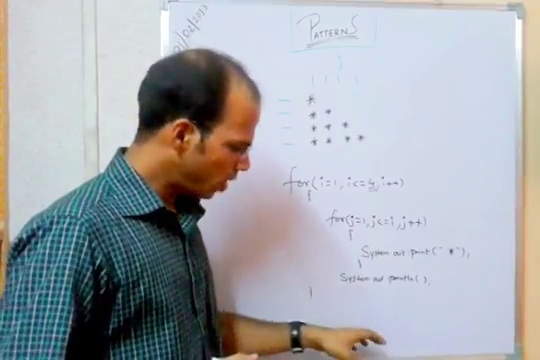 PATTERNS
*
* *
* * *
* * * *
for(i=1, i<=4, i++)
{
for(j=1, j<=i, j++)
{
System out print(" * "),
}
System out println( ),
}